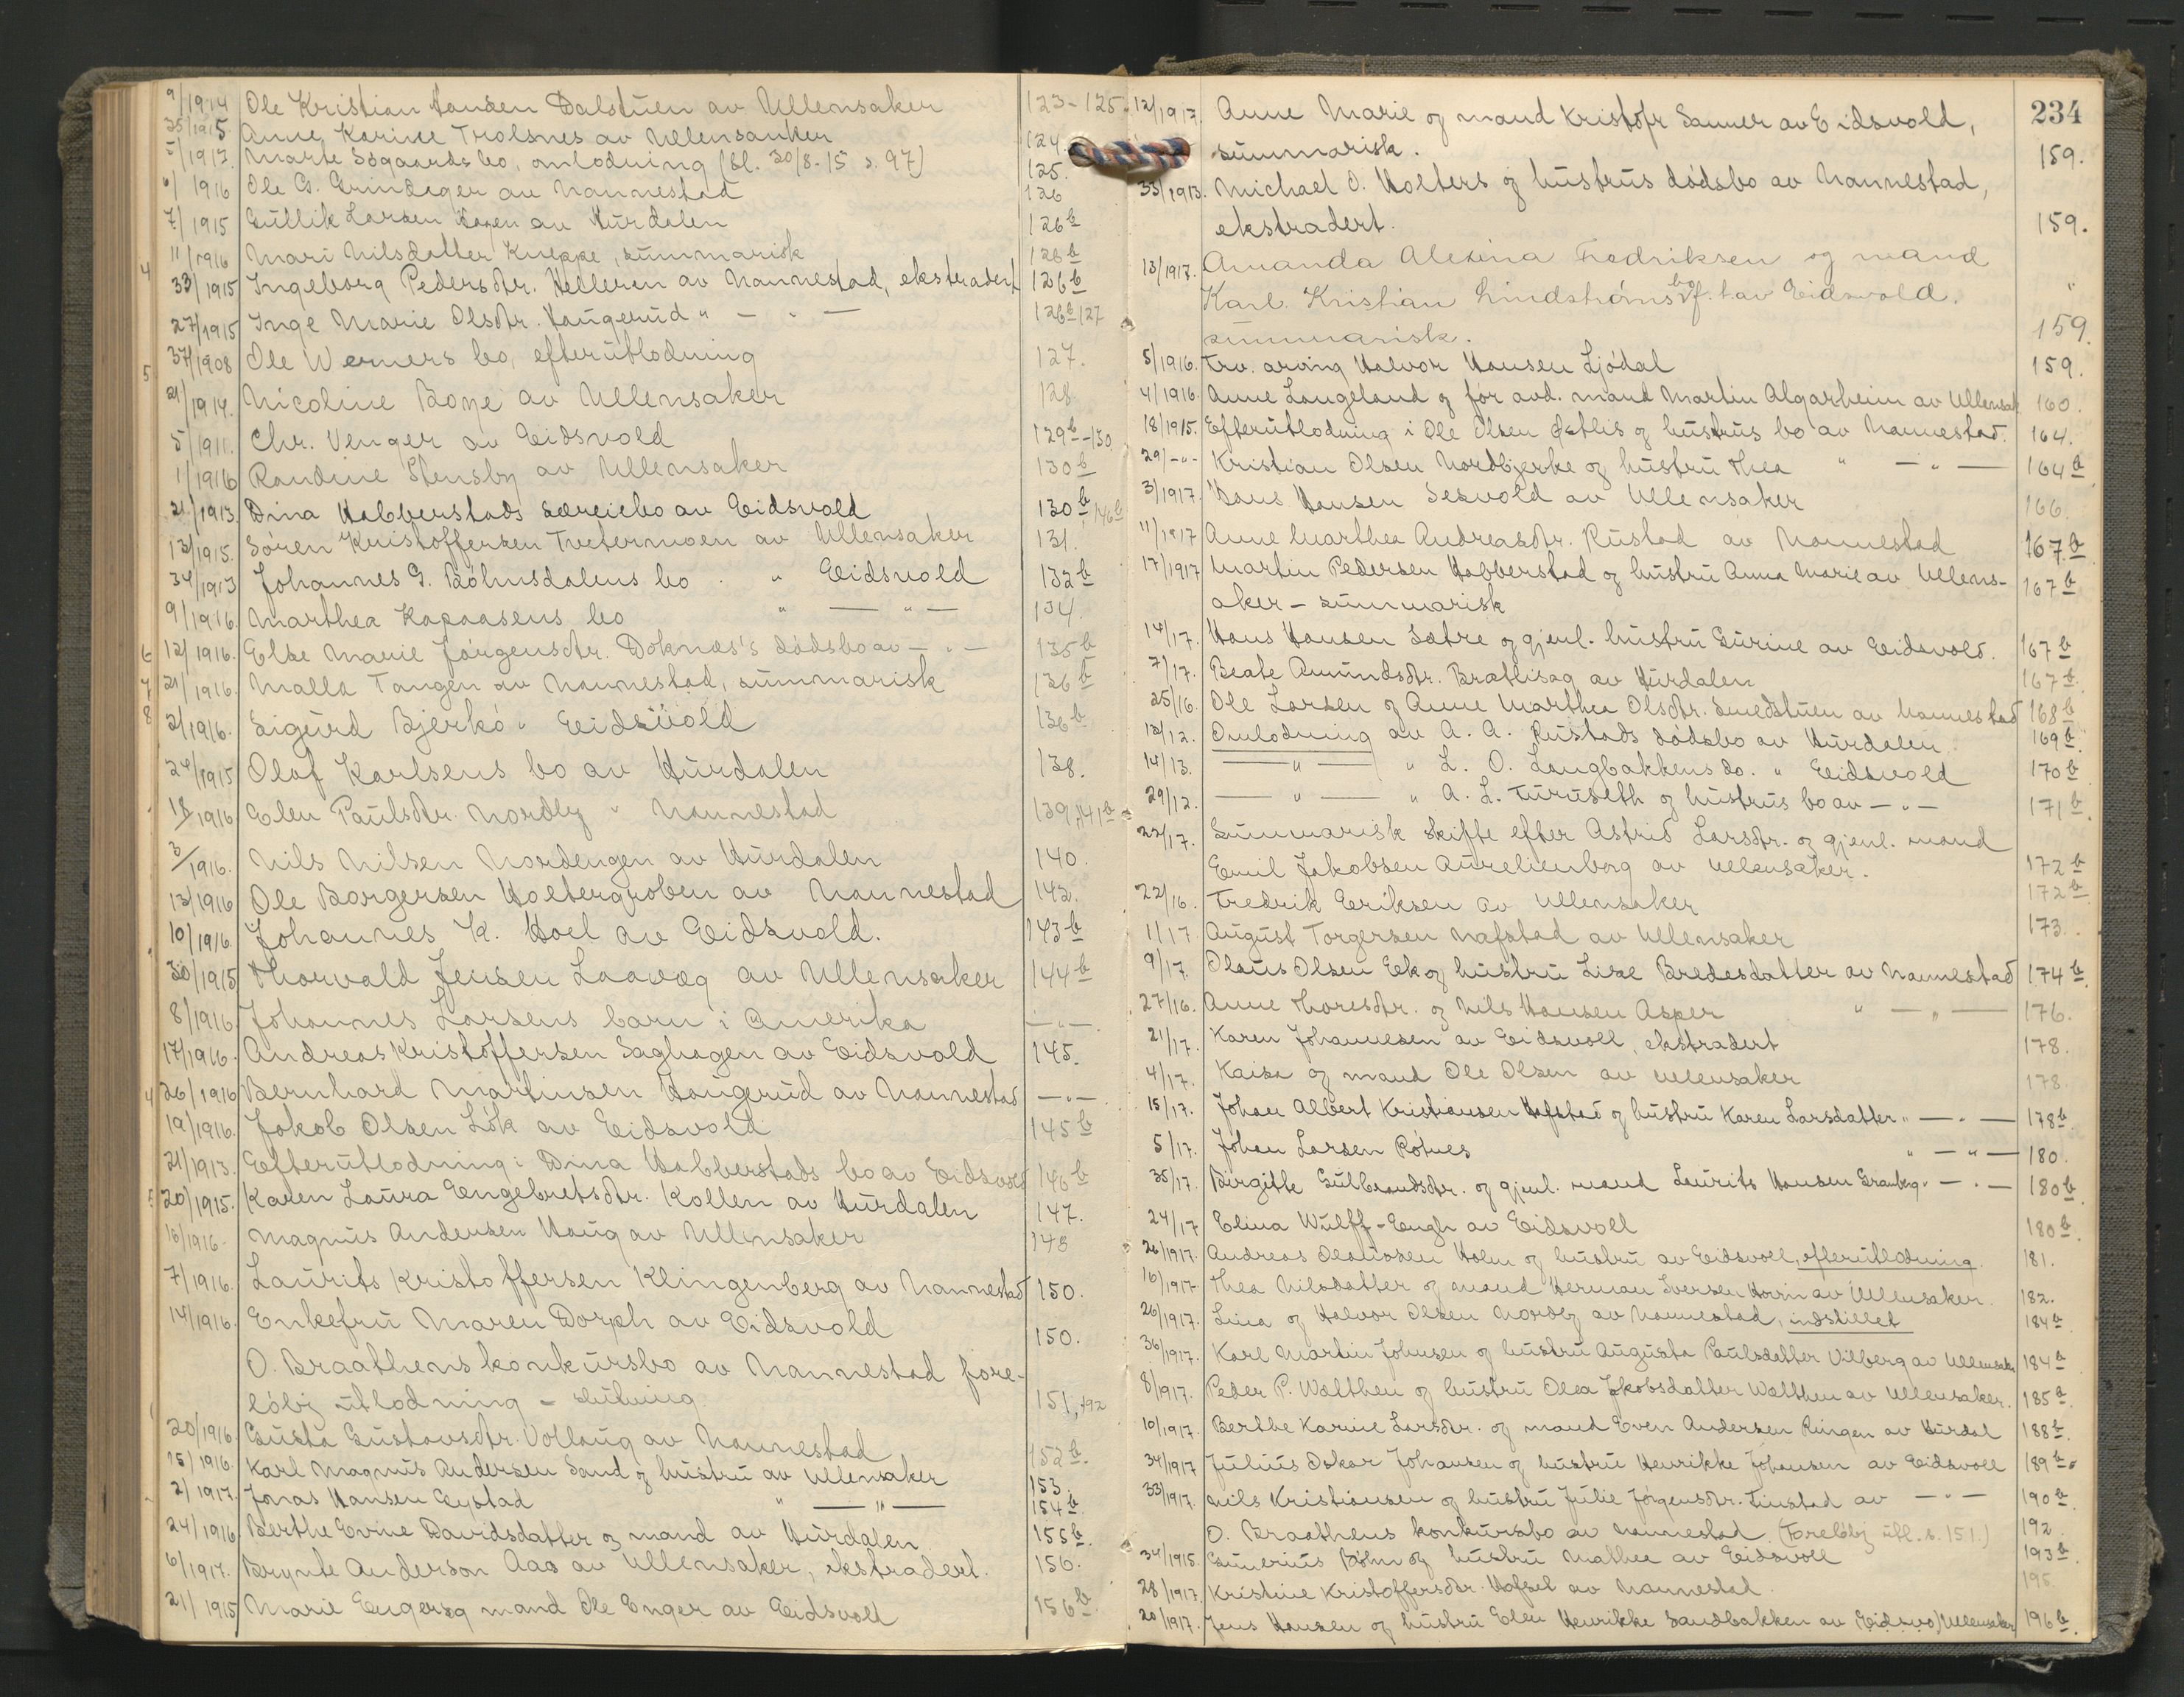 9/1914 Ole Kristian Hansen Dalstuen av Ullensaker 123-125.
35/1915. Anne Karine Trolsnes av Ullensanker 124.
5/1912. Marte Søgaards bo, omlodning (bl. 30/8-15 s. 97) 125.
6/1916 Ole G. Grindager av Nannestad 126
7/1915 Gullik Larsen Hagen av Hurdalen 126b
11/1916 Mari Nilsdatter Kneppe, summarisk 126b
33/1915 Ingeborg Pedersdtr. Helleren av Nannestad, ekstradert 126b
27/1915 Inge Marie Olsdtr. Haugerud " — " — 126b/127
37/1908 Ole Werners bo, efterutlodning 127.
21/1914. Nicoline Bonje av Ullensaker 128.
5/1911. Chr. Venger av Eidsvold 129b-130.
1/1916 Randine Stensby av Ullensaker 130b
21/1913. Dina Habberstads særeiebo av Eidsvold 130b, 146b
13/1915. Søren Kristoffersen Tveternoen av Ullensaker 131.
34/1913 Johannes G. Bøhnsdalens bo " Eidsvold 132b
9/1916. Marthea Kapaasens bo " — " — 134.
12/1916. Else Marie Jørgensdtr. Doknæs's dødsbo av — " — 135b
21/1916. Malla Tangen av Nannestad, summarisk 136b
2/1916. Sigurd Bjerkø " Eidsvold 136b
24/1915 Olaf Karlsens bo av Hurdalen 138.
18/1916 Elen Paulsdtr. Nordby " Nannestad 139, 141b
3/1916. Nils Nilsen Nordengen av Hurdalen 140.
13/1916 Ole Borgersen Holtergroben av Nannestad 142.
10/1916. Johannes K. Hoel av Eidsvold. 143b
30/1915 Thorvald Jensen Laavæg av Ullensaker 144b
8/1916. Johannes Larsens barn i Amerika — " —
17/1916. Andreas Kristoffersen Saghagen av Eidsvold 145.
26/1916 Bernhard Martinsen Haugerud av Nannestad — " —
19/1916. Jakob Olsen Løk av Eidsvold 145b
21/1913. Efterutlodning i Dina Habberstads bo av Eidsvold 146b
20/1915. Karen Laura Engebretsdtr. Kollen av Hurdalen 147.
16/1916. Magnus Andersen Haug av Ullensaker 148
7/1916. Laurits Kristoffersen Klingenberg av Nannestad 150.
14/1916. Enkefru Maren Dorph av Eidsvold 150.
O. Braathens konkursbo av Nannestad fore-
løbig utlodning - slutning 151, 192
20/1916. Gusta Gustavsdtr. Vollaug av Nannestad 152b
25/1916. Karl Magnus Andersen Sand og hustru av Ullensaker 153.
2/1917. Jonas Hansen Gystad " — " — 154b
24/1916 Berthe Evine Davidsdatter og mand av Hurdalen 155b
6/1917. Brynte Anderson Aas av Ullensaker, ekstradert. 156.
21/1915 Marie Enger og mand Ole Enger av Eidsvold 156b
234
12/1917. Anne Marie og mand Kristofr Sanner av Eidsvold,
summarisk. 159.
33/1913. Michael O. Holters og hustrus dødsbo av Nannestad,
ekstradert. 159.
13/1917. Amanda Alexina Fredriksen og mand
Karl Kristian Lindstrøms bo f. t. av Eidsvold.
summarisk. 159.
5/1916. Frv. arving Halvor Hansen Ljødal 159.
4/1916. Anne Langeland og før avd. mand Martin Algarheim av Ullensak 160.
18/1915. Efterutlodning i Ole Olsen Østlis og hustrus bo av Nannestad. 164.
29/-"- Kristian Olsen Nordbjerke og hustru Thea " — " — 164b
3/1917. Hans Hansen Sesvold av Ullensaker 166.
11/1917 Anne Marthea Andreasdtr. Rustad av Nannestad 167b
17/1917 Martin Pedersen Habberstad og hustru Anna Marie av Ullens- 167b
aker - summarisk
14/17. Hans Hansen Sætre og gjenl. hustru Gurine av Eidsvold. 167b
7/17. Beate Amundsdtr. Brætlisag av Hurdalen 167b
25/16. Ole Larsen og Anne Marthea Olsdtr. Smedstuen av Nannestad 168b
13/12. Omlodning av A. A. Rustads dødsbo av Hurdalen 169b
14/13. — " — " L. O. Langbakkens do. " Eidsvold 170b
29/12. — " — " A. L. Turuseth og hustrus bo av — " — 171b
22/17. Summarisk skifte efter Astrid Larsdtr. og gjenl. mand
Emil Jakobsen Aurelienborg av Ullensaker. 172b
22/16. Fredrik Eriksen av Ullensaker 172b
1/17 August Torgersen Nafstad av Ullensaker 173.
9/17. Olaus Olsen Eek og hustru Lise Bredesdatter av Nannestad 174b
27/16. Anne Thoresdtr. og Nils Hansen Asper " — " — 176.
21/17. Karen Johannesen av Eidsvoll, ekstradert 178.
4/17. Kaisa og mand Ole Olsen av Ullensaker 178.
15/17. Johan Albert Kristiansen Hafstad og hustru Karen Larsdatter " — " — 178b
5/17. Johan Larsen Røtnes " — " — 180.
35/17. Birgitte Gulbrandsdtr. og gjenl. mand Laurits Hansen Granberg " — " — 180b
24/17 Elina Wulff-Engh av Eidsvoll 180b
26/1917. Andreas Olaussen Holm og hustru av Eidsvoll, efterutlodning 181.
16/1917 Thea Nilsdatter og mand Herman Iversen Horn av Ullensaker. 182.
26/1917. Lina og Halvor Olsen Nordby av Nannestad, indstillet 184b
36/1917. Karl Martin Johnsen og hustru Augusta Paulsdatter Vilberg av Ullensaker 184b
8/1917. Peder P. Walthen og hustru Olea Jakobsdatter Walthen av Ullensaker. 185b
10/1917. Berthe Karine Larsdtr. og mand Even Andersen Ringen av Hurdal 188b
34/1917 Julius Oskar Johansen og hustru Henrikke Johansen av Eidsvoll 189b
33/1917. Nils Kristiansen og hustru Julie Jørgensdtr. Finstad av — " — 190b
O. Braathens konkursbo av Nannestad (Foreløbig utl. s. 151.) 192.
34/1915. Gunerius Bøhn og hustru Mathea av Eidsvoll 193b
28/1917. Kristine Kristoffersdtr. Hofsel av Nannestad 195.
20/1917. Jens Hansen og hustru Elen Henrikke Sandbakken av (Eidsvo) Ullensaker 196b